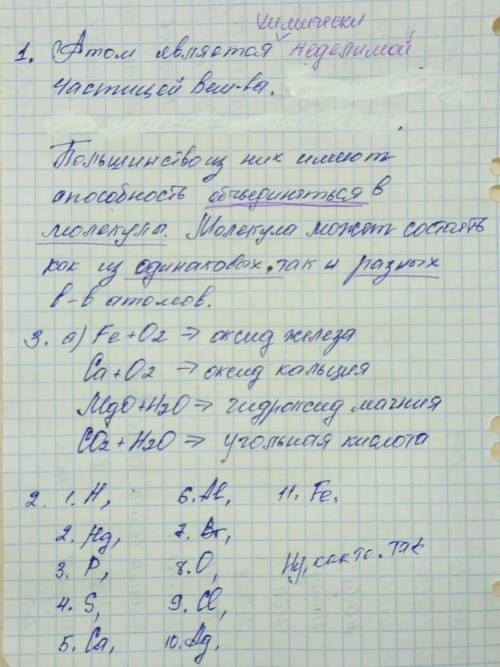 химически
1. Атом является неделимой
частицей вещ-ва.
Большинство из них имеют
способность объединяться в
молекулы. Молекула может состоять
как из одинаковых, так и разных
в-в атомов.
3. а) Fe + O2 → оксид железа
Ca + O2 → оксид кальция
MgO + H2O → гидроксид магния
CO2 + H2O → угольная кислота
2. 1. H, 6. Al, 11. Fe.
2. Hg, 7. Br,
3. P, 8. O, Ну, как-то так
4. S, 9. Cl,
5. Ca, 10. Ag,